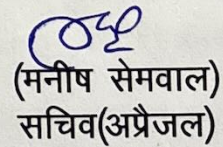 (मनीष सेमवाल)
सचिव(अप्रैजल)